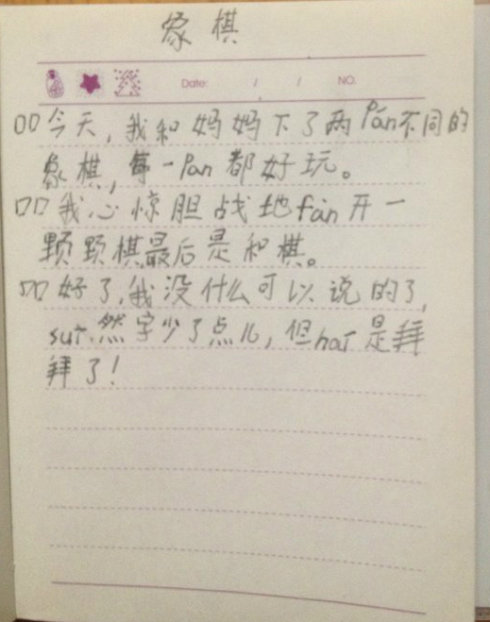 象棋
Date: / / NO.
今天，我和妈妈下了两Pán不同的
象棋，每一Pan都好玩。
我心惊胆战地fān开一
颗颗棋最后是和棋。
好了，我没什么可以说的了，
suī然字少了点儿，但hai是拜
拜了！